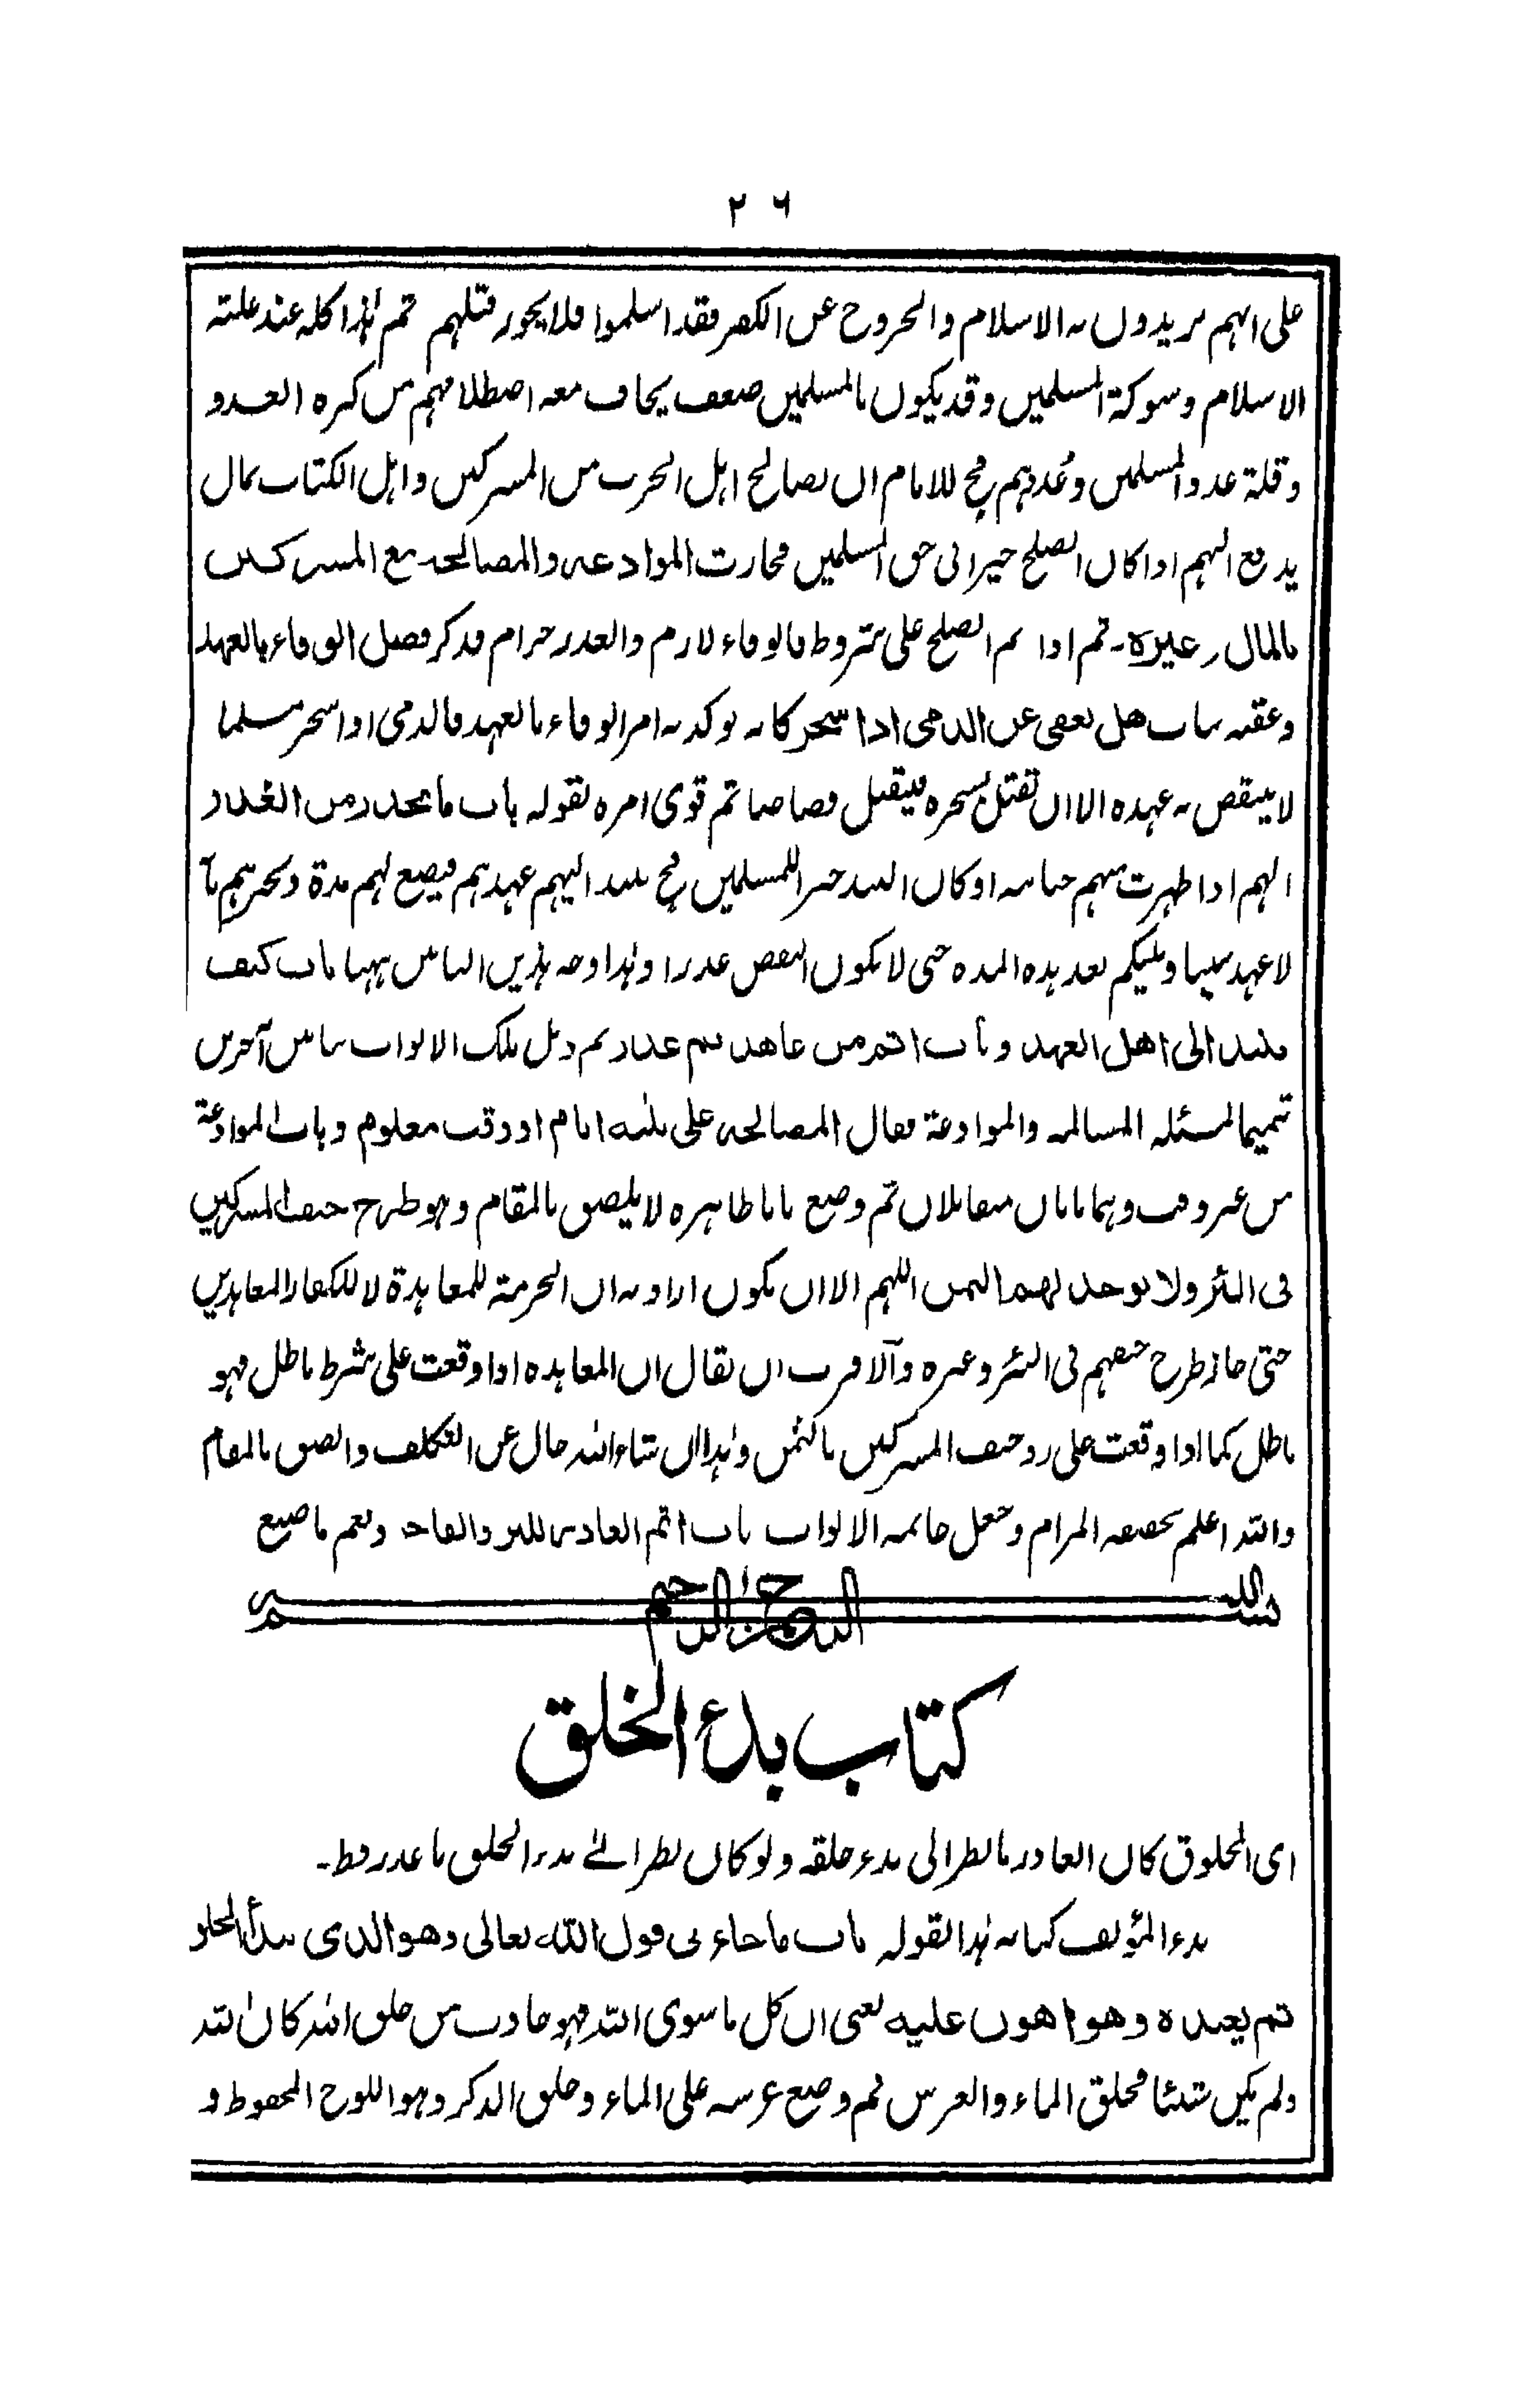 ٢٦
على انهم يريدون به الاسلام والخروج عن الكفر فقد اسلموا فلا يجوز قتلهم ثم هذا كله عند غلبة
الاسلام وشوكة المسلمين وقد يكون بالمسلمين ضعف يخاف معه اصطلامهم من كثرة العدو
وقلة عدد المسلمين وعُددهم فح للامام ان يصالح اهل الحرب من المشركين واهل الكتاب بمال
يدفع اليهم اذا كان الصلح خيرا فى حق المسلمين فجازت الموادعة والمصالحة مع المشركين
بالمال وغيره۔ ثم اذا تم الصلح على شروط فالوفاء لازم والغدر حرام فذكر فضل الوفاء بالعهد
وعقبه بباب هل يعفى عن الذمى اذا سحر كانه يؤكد به امر الوفاء بالعهد فالذمى اذا سحر مسلما
لا ينتقض به عهده الا ان تقتل بسحره فيقتل قصاصا ثم قوى امره بقوله باب ما يحذر من الغدر
اللهم اذا ظهرت منهم خيانة او كان النبذ خيرا للمسلمين فح ينبذ اليهم عهدهم فيضع لهم مدة ويخبرهم بأن
لا عهد بيننا وبينكم بعد هذه المدة حتى لا يكون النقض غدرا وهذا وجه باب كيف
ينبذ الى اهل العهد وباب اثم من عاهد ثم غدر ثم ذيل تلك الابواب ببابين آخرين
تتميما لمسئلة المسالمة والموادعة فقال المصالحة على ثلثة ايام او وقت معلوم وباب الموادعة
من غير وقت وهما بابان متقابلان ثم وضع بابا ظاهره لا يلصق بالمقام وهو طرح جيف المشركين
فى البئر ولا يوخذ لهم الثمن اللهم الا ان يكون اراد به ان الحرمة للمعاهدة لا للكفار المعاهدين
حتى جاز طرح جيفهم فى البئر وغيره والاقرب ان يقال ان المعاهدة اذا وقعت على شرط باطل فهو
باطل كما اذا وقعت على رد جيف المشركين بالثمن وهذا ان شاء الله خال عن التكلف والصق بالمقام
والله اعلم بحقيقة المرام وجعل خاتمة الابواب باب اثم الغادر للبر والفاجر ونعم ما صنع
بسم الله الرحمن الرحيم
كتاب بدء الخلق
اى المخلوق كان الغادر ما نظر الى بدء خلقه ولو كان نظر الى بدء الخلق ما غدر قط۔
بدء المؤلف كتابه هذا بقوله باب ما جاء فى قول الله تعالى وهو الذى يبدأ الخلق
ثم يعيده وهو اهون عليه يعنى ان كل ما سوى الله فهو حادث من خلق الله كان الله
ولم يكن شيئا فخلق الماء والعرش ثم وضع عرشه على الماء وخلق الذكر وهو اللوح المحفوظ و